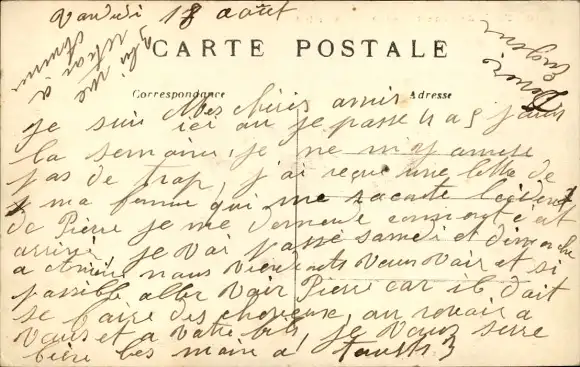 Vendredi 18 août
CARTE POSTALE
Correspondance
Adresse
Mes chéris amis
je suis ici ou je passe 4 a 5 jours
la semaine, je ne m'y amuse
pas de trop, j'ai reçue une lettre de
ma femme qui me raconte l'acident
de Pierre je me demende comment c'est
arrivé, je vai passé samedi et dimanche
a nous viendront vous voir et si
possible aller voir Pierre car il doit
se faire des cheveux, au revoir a
vous et a votre fils je vous serre
bien les main a tous